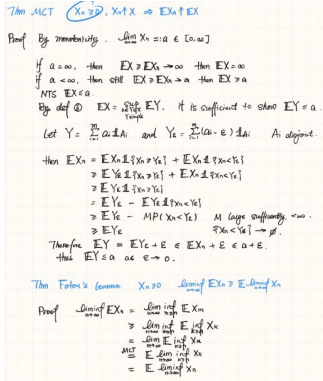 Thm MCT Xn ≥ 0, Xn ↑ X ⇒ EXn ↑ EX
Proof By monotonicity. lim_{n→∞} EXn =: a ∈ [0,∞]
if a = ∞, then EX ≥ EXn → ∞ then EX = ∞
if a < ∞, then still EX ≥ EXn → a then EX ≥ a
NTS EX ≤ a.
By def ① EX = sup EY. it is sufficient to show EY ≤ a.
Let Y = Σ_{i=1}^{m} ai 1Ai and Yε = Σ_{i=1}^{m} (ai - ε) 1Ai Ai disjoint.
then EXn = EXn 1{Xn ≥ Yε} + EXn 1{Xn < Yε}
≥ EYε 1{Xn ≥ Yε} + EXn 1{Xn < Yε}
≥ EYε 1{Xn ≥ Yε}
= EYε - EYε 1{Xn < Yε}
≥ EYε - MP(Xn < Yε) M large sufficiently, < ∞.
≥ EYε {Xn < Yε} → ∅.
Therefore EY = EYε + ε ≤ EXn + ε ≤ a + ε.
thus EY ≤ a as ε → 0.
Thm Fatou's Lemma. Xn ≥ 0 liminf_{n→∞} EXn ≥ E liminf_{n→∞} Xn
Proof liminf_{n→∞} EXn = lim_{n→∞} inf_{m≥n} E Xm
≥ lim_{n→∞} inf_{m≥n} E inf_{k≥n} Xk
= lim_{n→∞} E inf_{k≥n} Xk
MCT = E lim_{n→∞} inf_{k≥n} Xk
= E liminf_{n→∞} Xn